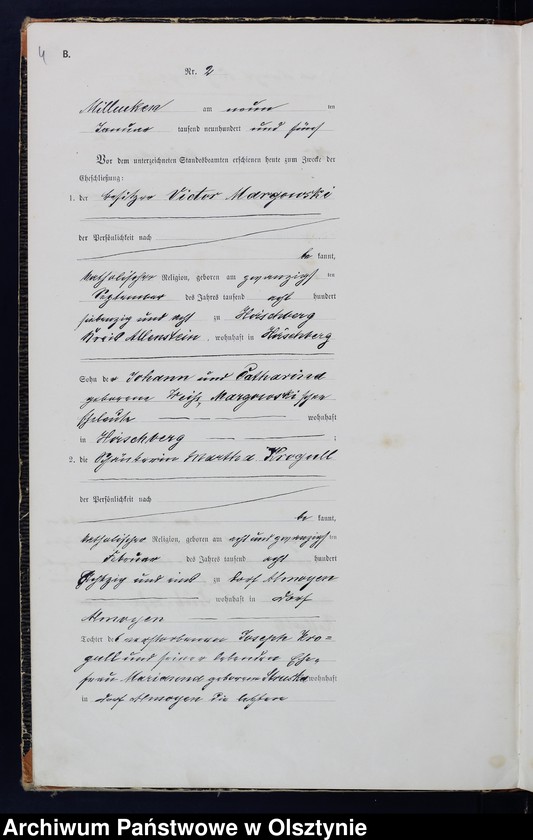 4
B.
Nr. 2
Millucken am neun ten
Januar tausend neunhundert und fünf
Vor dem unterzeichneten Standesbeamten erschienen heute zum Zwecke der
Eheschließung:
1. der Besitzer Victor Margowski
der Persönlichkeit nach
be kannt,
katholischer Religion, geboren am zwanzigs ten
September des Jahres tausend acht hundert
siebenzig und acht zu Hirschberg
Kreis Allenstein, wohnhaft in Hirschberg
Sohn der Johann und Catharina
geborene Margowskischen
Eheleute wohnhaft
in Hirschberg ;
2. die Martha Krogull
der Persönlichkeit nach
be kannt,
katholischer Religion, geboren am acht und zwanzigs ten
Februar des Jahres tausend acht hundert
achtzig und eins zu Dorf Almoyen
wohnhaft in Dorf
Almoyen
Tochter des verstorbenen Joseph Kro=
gull und seiner lebenden Ehe=
frau Marianna geborene wohnhaft
in Dorf Almoyen die letztere
Archiwum Państwowe w Olsztynie